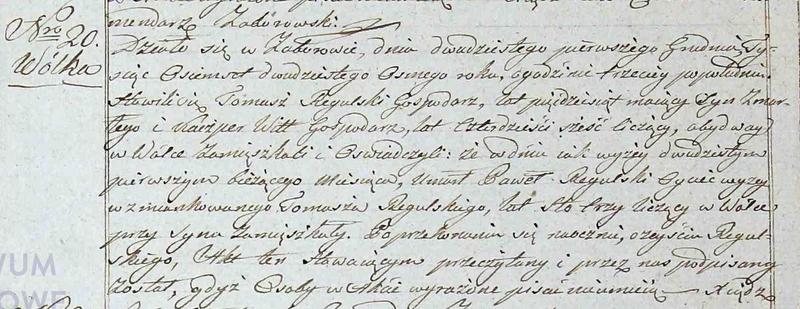 mendarz Zaborowski.
Nro 20.
Wólka
Działo się w Zaborowie, dnia dwudziestego pierwszego Grudnia, Ty-
siąc Osiemset dwudziestego Osmego roku, o godzinie trzeciey popołudniu.
Stawili się Tomasz Regulski Gospodarz, lat pięćdziesiąt maiący Syn Zmar-
łego i Kacper Witt Gospodarz, lat Czterdzieści sześć liczący, obydway
w Wólce Zamięszkali i Oswiadczyli: że w dniu iak wyżey dwudziestym
pierwszym bieżącego Miesiąca, Umarł Paweł Regulski Oyciec wyżey
wzmiankowanego Tomasza Regulskiego, lat Sto trzy liczący w Wólce
przy Synu Zamięszkały. Po przekonaniu się naocznie, o zeyściu Regul-
skiego, Akt ten Stawaiącym przeczytany i przez nas podpisany
został, gdyż Osoby w Akcie wyrażone pisać nieumieią Xiądz
WUM
OWE